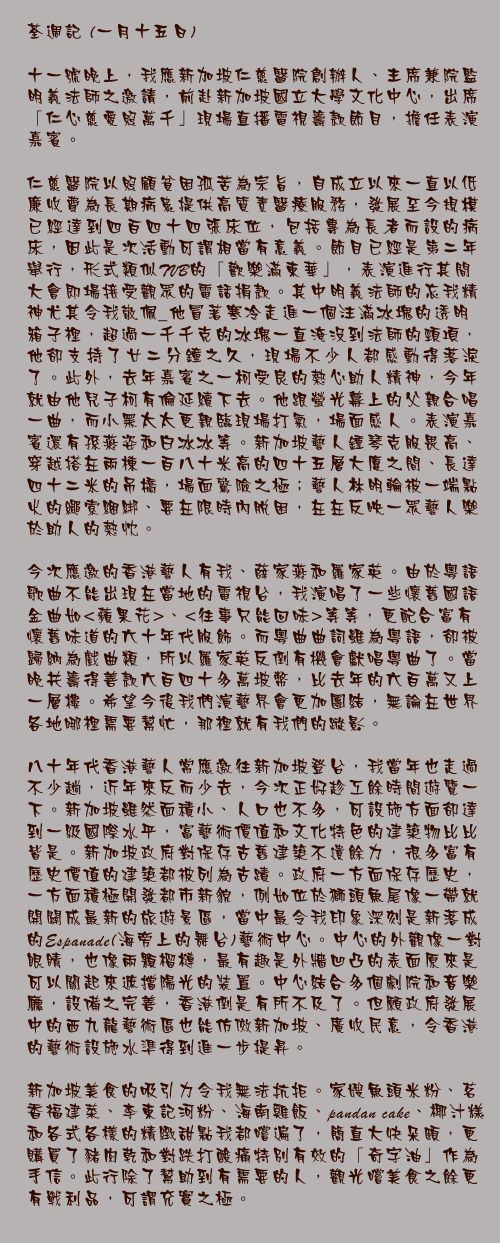 荃週記 (一月十五日)
十一號晚上，我應新加坡仁慈醫院創辦人、主席兼院監
明義法師之邀請，前赴新加坡國立大學文化中心，出席
「仁心慈愛照萬千」現場直播電視籌款節目，擔任表演
嘉賓。
仁慈醫院以照顧貧困孤苦為宗旨，自成立以來一直以低
廉收費為長期病患提供高質素醫療服務，發展至今規模
已經達到四百四十四張床位，包括專為長者而設的病
床，因此是次活動可謂相當有意義。節目已經是第二年
舉行，形式類似TVB的「歡樂滿東華」，表演進行其間
大會即場接受觀眾的電話捐款。其中明義法師的忘我精
神尤其令我敬佩_他冒著寒冷走進一個注滿冰塊的透明
箱子裡，超過一千千克的冰塊一直淹沒到法師的頸項，
他卻支持了廿二分鐘之久，現場不少人都感動得落淚
了。此外，去年嘉賓之一柯受良的熱心助人精神，今年
就由他兒子柯有倫延續下去。他跟螢光幕上的父親合唱
一曲，而小黑太太更親臨現場打氣，場面感人。表演嘉
賓還有孫燕姿和白冰冰等。新加坡藝人鍾琴克服畏高、
穿越搭在兩棟一百八十米高的四十五層大廈之間、長達
四十二米的吊橋，場面驚險之極；藝人林明輪被一端點
火的繩索綑綁、要在限時內脫困，在在反映一眾藝人樂
於助人的熱忱。
今次應邀的香港藝人有我、薛家燕和羅家英。由於粵語
歌曲不能出現在當地的電視台，我演唱了一些懷舊國語
金曲如<蘋果花>、<往事只能回味>等等，更配合富有
懷舊味道的六十年代服飾。而粵曲曲詞雖為粵語，卻被
歸納為戲曲類，所以羅家英反倒有機會獻唱粵曲了。當
晚共籌得善款六百四十多萬坡幣，比去年的六百萬又上
一層樓。希望今後我們演藝界會更加團結，無論在世界
各地哪裡需要幫忙，那裡就有我們的蹤影。
八十年代香港藝人常應邀往新加坡登台，我當年也走過
不少趟，近年來反而少去，今次正好趁工餘時間遊覽一
下。新加坡雖然面積小、人口也不多，可設施方面卻達
到一級國際水平，富藝術價值和文化特色的建築物比比
皆是。新加坡政府對保存古舊建築不遺餘力，很多富有
歷史價值的建築都被列為古蹟。政府一方面保存歷史，
一方面積極開發都市新貌，例如位於獅頭魚尾像一帶就
開闢成最新的旅遊景區，當中最令我印象深刻是新落成
的Espanade(海帝上的舞台)藝術中心。中心的外觀像一對
眼睛，也像兩顆榴槤，最有趣是外牆凹凸的表面原來是
可以關起來遮擋陽光的裝置。中心結合多個劇院和音樂
廳，設備之完善，香港倒是有所不及了。但願政府發展
中的西九龍藝術區也能仿傚新加坡、廣收民意，令香港
的藝術設施水準得到進一步提昇。
新加坡美食的吸引力令我無法抗拒。家嫂魚頭米粉、茗
香福建菜、李東記河粉、海南雞飯、pandan cake、椰汁糕
和各式各樣的精緻甜點我都嚐遍了，簡直大快朵頤，更
購買了豬肉乾和對跌打酸痛特別有效的「奇字油」作為
手信。此行除了幫助到有需要的人，觀光嚐美食之餘更
有戰利品，可謂充實之極。